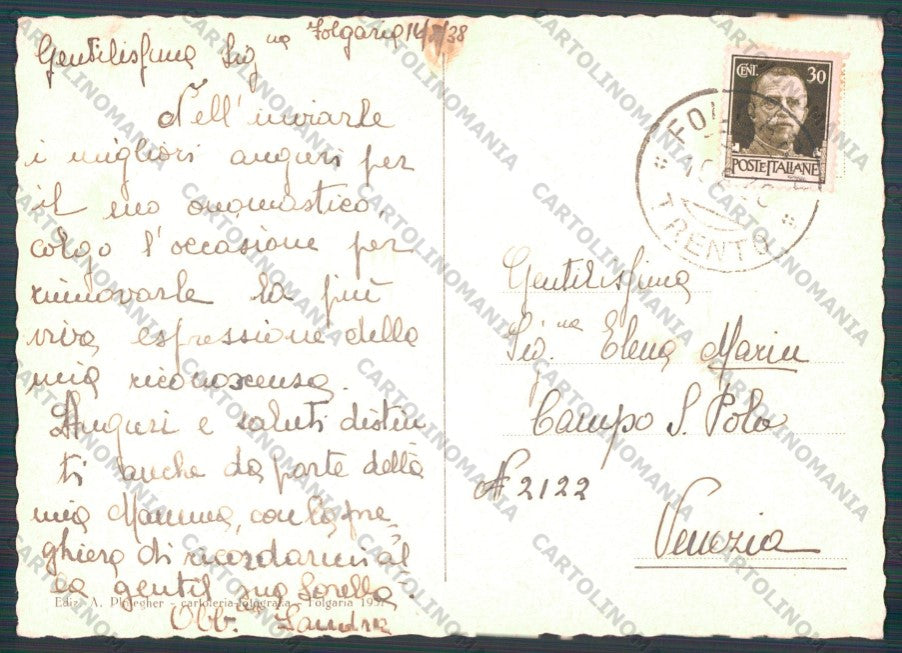 Folgaria 14/ /38
Gentilissima Sig.na
Nell'inviarle
i migliori auguri per
il suo onomastico,
colgo l'occasione per
rinnovarle la più
viva espressione della
mia riconoscenza.
Auguri e saluti distin
ti anche da parte della
mia Mamma, con la pre,
ghiera di ricordarmi al
la gentil sua Sorella.
Obb.ma Sandra
Ediz. A. Plotegher - cartoleria-fotografia - Folgaria 193
CENT. 30
POSTE ITALIANE
TRENTO
Gentilissima
Sig.na Elena Marin
Campo S. Polo
N 2122
Venezia
CARTOLINOMANIA